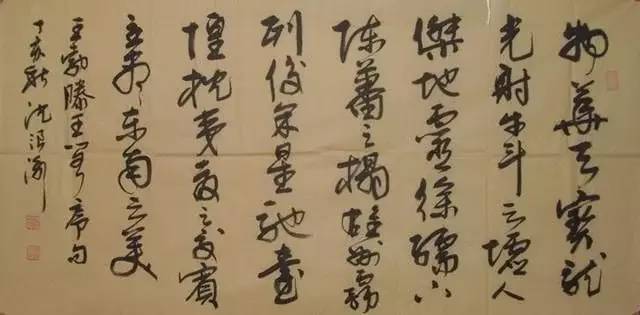 物華天寶龍
光射牛斗之墟人
傑地靈徐孺下
陳蕃之榻雄州霧
列俊采星馳臺
隍枕夷夏之交賓
主盡東南之美
王勃滕王閣序句
丁亥秋 沈